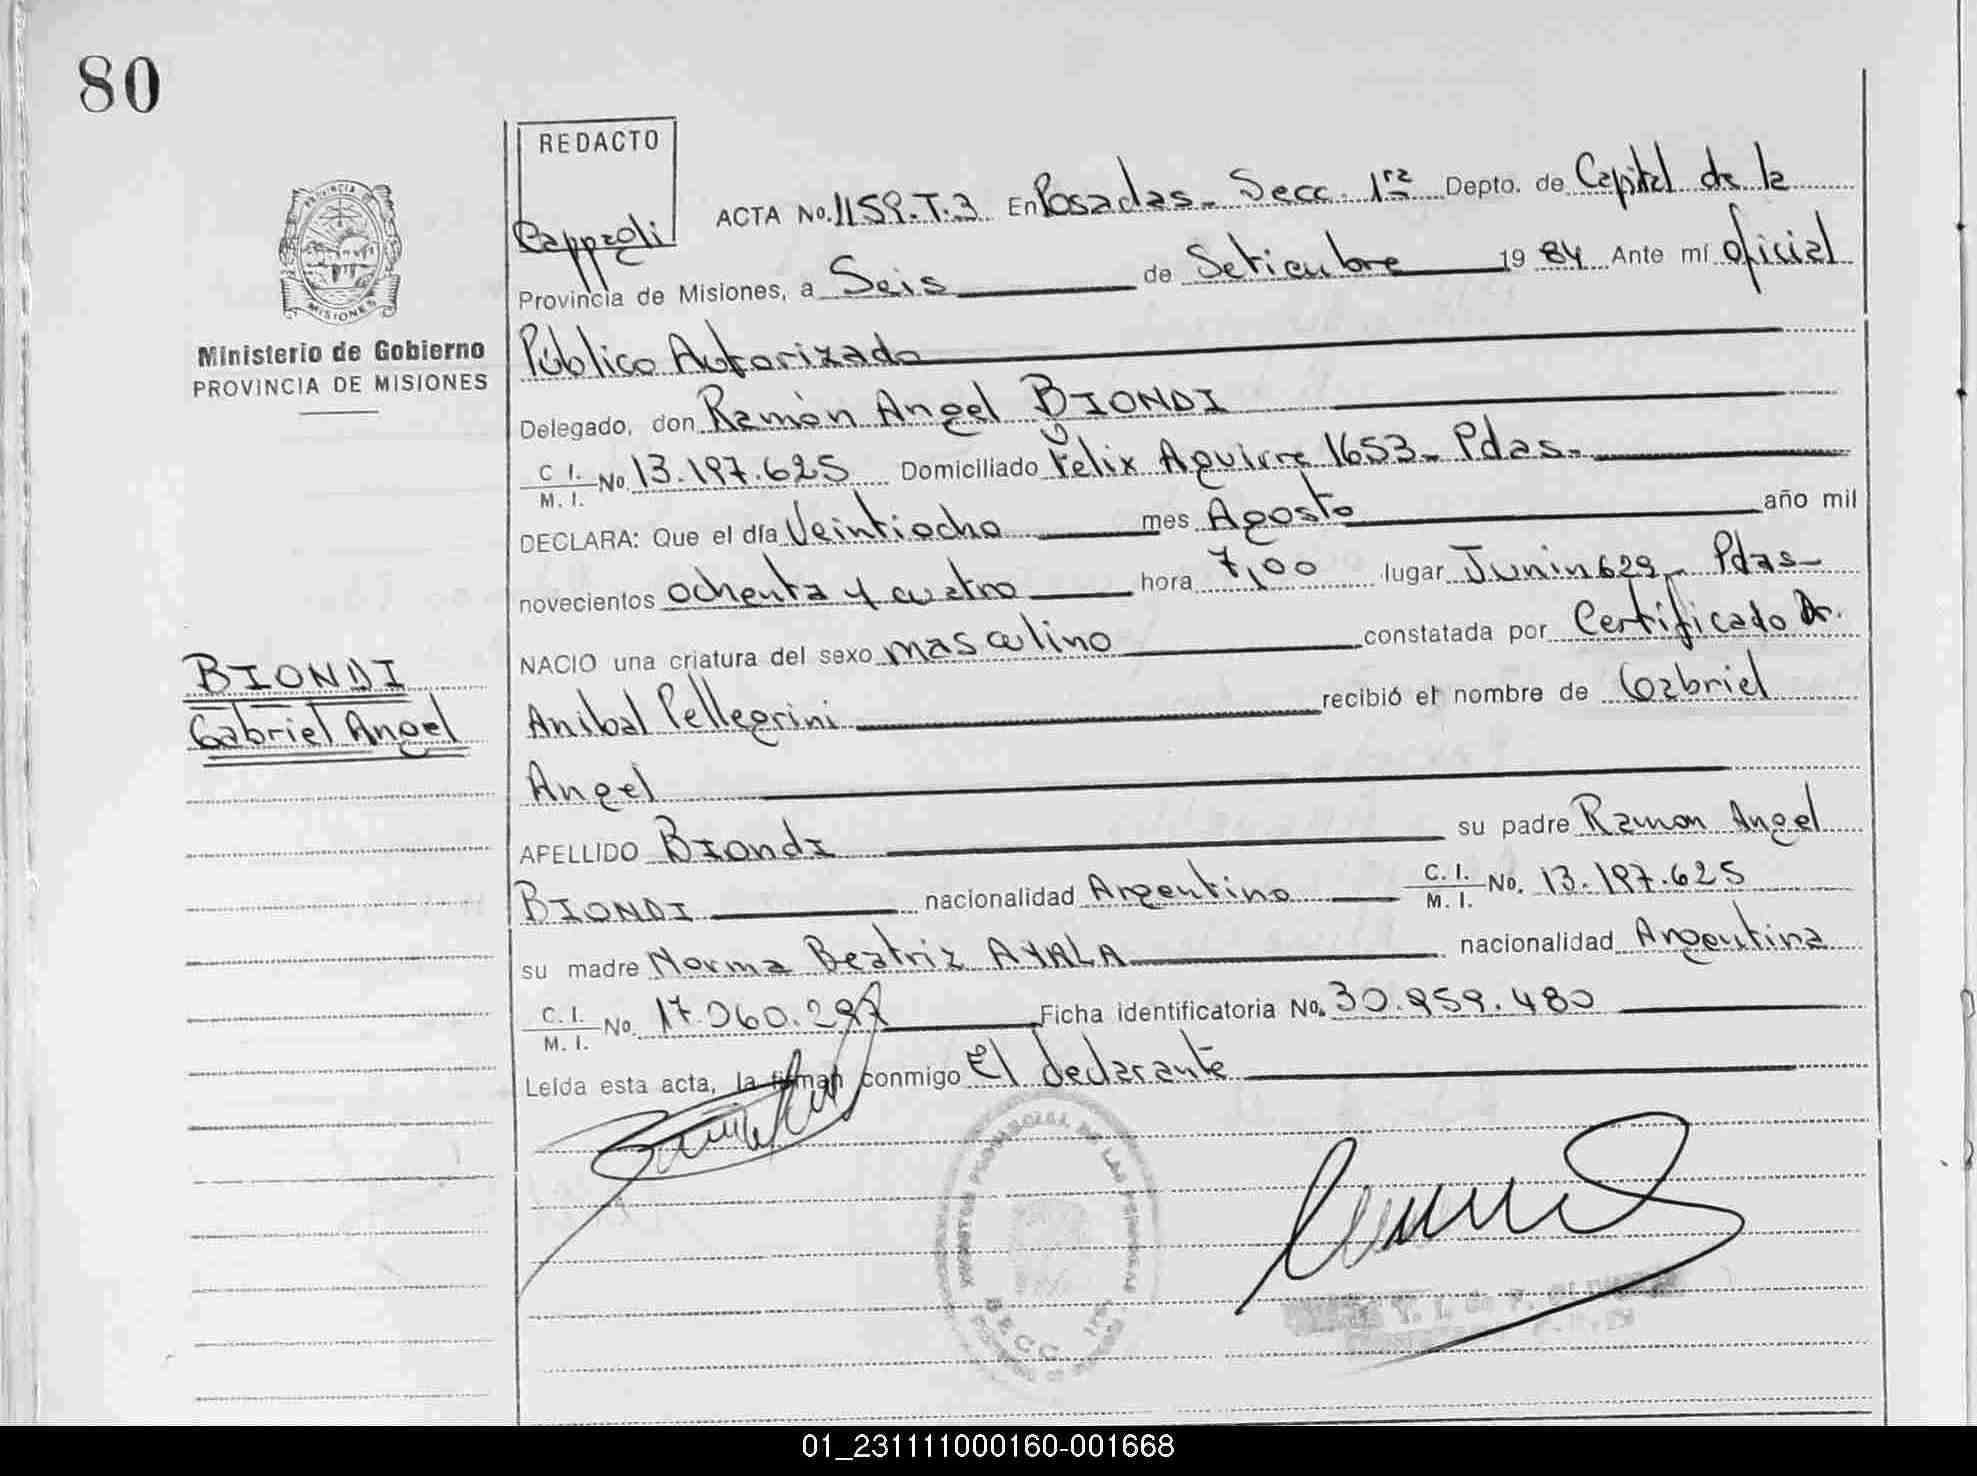 80
REDACTO
Cappzoli
ACTA No. 1159.T.3 En Posadas- Secc. 1ra Depto. de Capital de la
Provincia de Misiones, a Seis de Setiembre 19 84 Ante mí Oficial
Público Autorizado
Delegado, don Ramón Angel BIONDI
C. I. / M. I. No. 13.197.625 Domiciliado Felix Aguirre 1653- Pdas.-
DECLARA: Que el día Veintiocho mes Agosto año mil
novecientos ochenta y cuatro hora 7,00 lugar Junin 629- Pdas-
NACIO una criatura del sexo masculino constatada por Certificado Dr.
Anibal Pellegrini recibió el nombre de Gabriel
Angel
APELLIDO BIondI su padre Ramon Angel
BIONDI nacionalidad Argentino C. I. / M. I. No. 13.197.625
su madre Norma Beatriz AYALA nacionalidad Argentina
C. I. / M. I. No. 17.060.297 Ficha identificatoria No. 30.959.480
Leída esta acta, la firman conmigo El declarante
PROVINCIA DE
MISIONES
Ministerio de Gobierno
PROVINCIA DE MISIONES
BIONDI
Gabriel Angel
PROVINCIAL DE LAS PERSONAS
SECC. 1ra
01_231111000160-001668